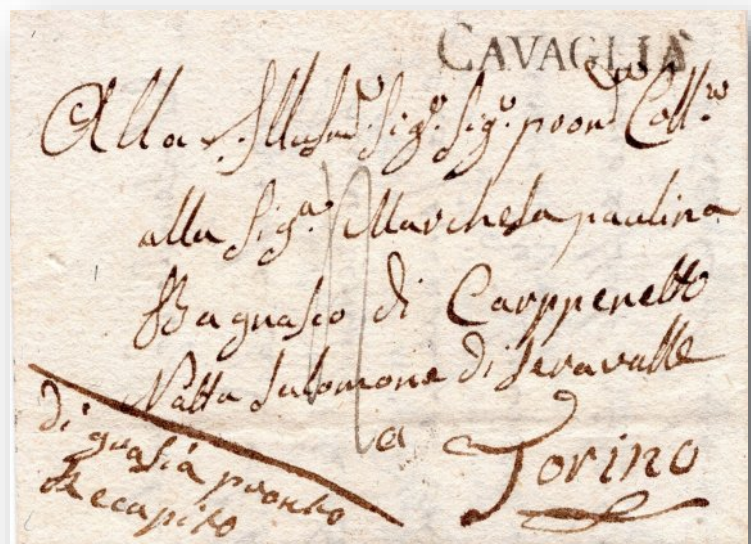 CAVAGLIÀ
Alla Illus.ma Sig.a Sig.a
alla Sig.a Marchesa paulina
Bagnasco di Carppenetto
Natta Salomone di Seravalle
a Torino
di grasia pronto
Recapito